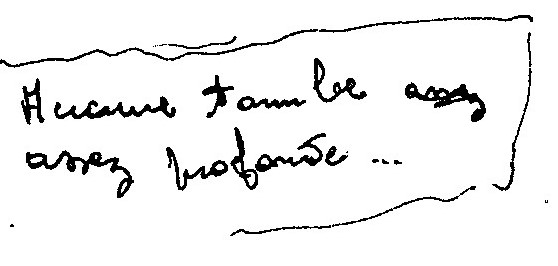 Aucune tombe assez
assez profonde ...